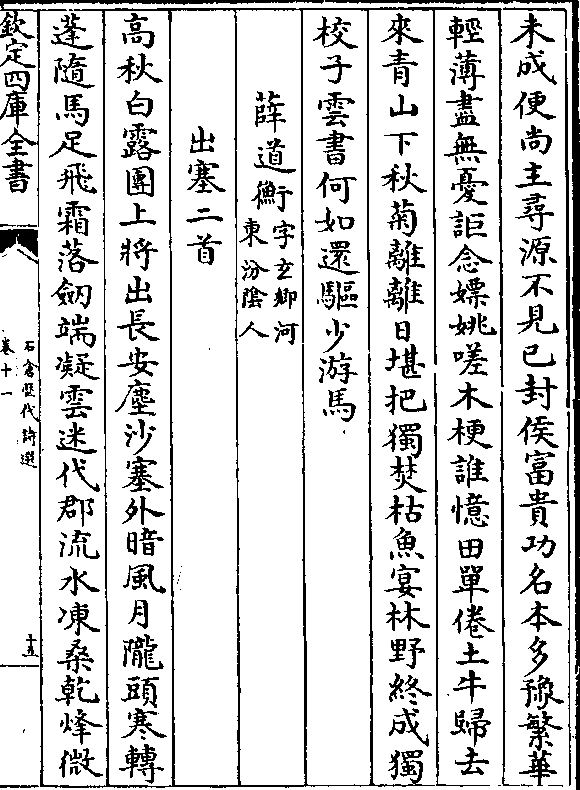 未成便尚主尋源不見已封侯富貴功名本多豫繁華
輕薄盡無憂詎念嫖姚嗟木梗誰憶田單倦土牛歸去
來青山下秋菊離離日堪把獨焚枯魚宴林野終成獨
校子雲書何如還驅少游馬
薛道衡字玄卿河
東汾陰人
出塞二首
高秋白露團上將出長安塵沙塞外暗風月隴頭寒轉
蓬隨馬足飛霜落劒端凝雲迷代郡流水凍桑乾烽微
欽定四庫全書
石倉歷代詩選
卷十一
十五